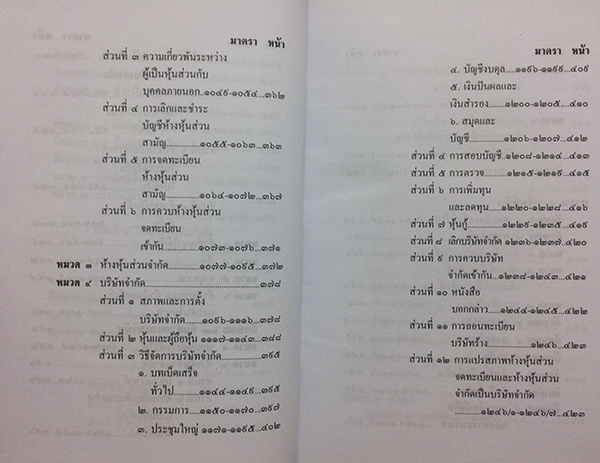 มาตรา หน้า
ส่วนที่ ๓ ความเกี่ยวพันระหว่าง
ผู้เป็นหุ้นส่วนกับ
บุคคลภายนอก...๑๐๔๙-๑๐๕๔...๓๖๒
ส่วนที่ ๔ การเลิกและชำระ
บัญชีห้างหุ้นส่วน
สามัญ..........๑๐๕๕-๑๐๖๓...๓๖๓
ส่วนที่ ๕ การจดทะเบียน
ห้างหุ้นส่วน
สามัญ..........๑๐๖๔-๑๐๗๒...๓๖๗
ส่วนที่ ๖ การควบห้างหุ้นส่วน
จดทะเบียน
เข้ากัน..........๑๐๗๓-๑๐๗๖...๓๗๑
หมวด ๓ ห้างหุ้นส่วนจำกัด......๑๐๗๗-๑๐๙๕...๓๗๒
หมวด ๔ บริษัทจำกัด..............................๓๗๘
ส่วนที่ ๑ สภาพและการตั้ง
บริษัทจำกัด.......๑๐๙๖-๑๑๑๖...๓๗๘
ส่วนที่ ๒ หุ้นและผู้ถือหุ้น ๑๑๑๗-๑๑๔๓...๓๘๘
ส่วนที่ ๓ วิธีจัดการบริษัทจำกัด.............๓๙๕
๑. บทเบ็ดเสร็จ
ทั่วไป......๑๑๔๔-๑๑๔๙...๓๙๕
๒. กรรมการ...๑๑๕๐-๑๑๗๐...๓๙๗
๓. ประชุมใหญ่ ๑๑๗๑-๑๑๙๕...๔๐๒
มาตรา หน้า
๔. บัญชีงบดุล...๑๑๙๖-๑๑๙๙...๔๐๙
๕. เงินปันผลและ
เงินสำรอง....๑๒๐๐-๑๒๐๕...๔๑๐
๖. สมุดและ
บัญชี..........๑๒๐๖-๑๒๐๗...๔๑๒
ส่วนที่ ๔ การสอบบัญชี...๑๒๐๘-๑๒๑๔...๔๑๓
ส่วนที่ ๕ การตรวจ.......๑๒๑๕-๑๒๑๙...๔๑๕
ส่วนที่ ๖ การเพิ่มทุน
และลดทุน.....๑๒๒๐-๑๒๒๘...๔๑๖
ส่วนที่ ๗ หุ้นกู้............๑๒๒๙-๑๒๓๕...๔๑๙
ส่วนที่ ๘ เลิกบริษัทจำกัด...๑๒๓๖-๑๒๓๗...๔๒๐
ส่วนที่ ๙ การควบบริษัท
จำกัดเข้ากัน...๑๒๓๘-๑๒๔๓...๔๒๑
ส่วนที่ ๑๐ หนังสือ
บอกกล่าว....๑๒๔๔-๑๒๔๕...๔๒๒
ส่วนที่ ๑๑ การถอนทะเบียน
บริษัทร้าง.............๑๒๔๖...๔๒๓
ส่วนที่ ๑๒ การแปรสภาพห้างหุ้นส่วน
จดทะเบียนและห้างหุ้นส่วน
จำกัดเป็นบริษัทจำกัด
........๑๒๔๖/๑-๑๒๔๖/๗...๔๒๓